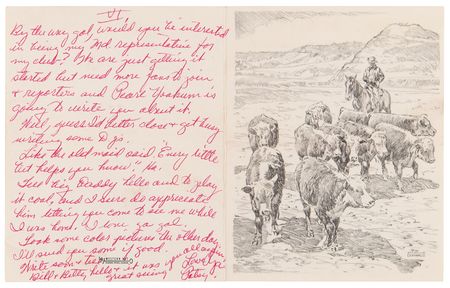 VI
By the way gal, would you be interested
in being my Md. representative for
my club? We are just getting it
started but need more fans to join
& reporters and Pearl Yoakum is
going to write you about it.
Well, guess I'd better close & get busy
writing some I go.
Like the old maid said, Every little
bit helps you know! Ha.
Tell Big Daddy hello and to play
it cool, and I sure do appreciate
him letting you come to see me while
I was home. I love ya gal.
Took some color pictures the other day
I'll send you some if good.
Write soon & tell
Bill & Kitty hello & it was
great seeing you all again
Love ya
Patsy